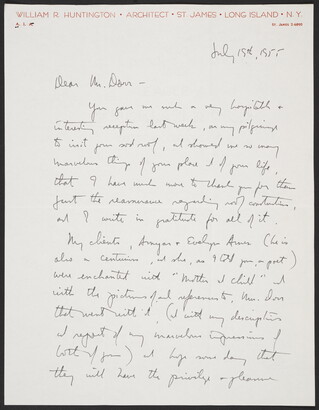 WILLIAM R. HUNTINGTON • ARCHITECT • ST. JAMES • LONG ISLAND • N. Y.
A. I. A.
St. James 2-6662
July 19th, 1955
Dear Mr. Dows –
You gave me such a very hospitable &
interesting reception last week, on my pilgrimage
to visit your sod roof, & showed me so many
marvelous things of your place & of your life,
that I have much more to thank you for than
just the reassurance regarding roof construction,
and I write in gratitude for all of it.
My clients, & Evelyn Ames (he is
also a , & she, as I told you a poet)
were enchanted with "Mother & Child" &
with the pictures and references, Mrs. Dows
that went with it, (& with my description
& report of my marvelous impressions of
both of you) & hope some day that
they will have the privilege & pleasure